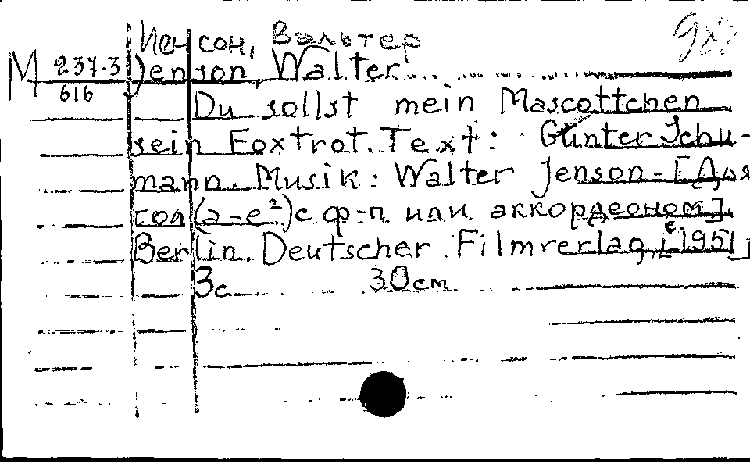 Иенсон, Вальтер
М 237-3 Jenson, Walter
616
Du sollst mein Mascottchen
sein Foxtrot. Text: Günter Schu-
mann. Musik: Walter Jenson - [Для
гол (a-e²) с ф-п. или аккордеоном].
Berlin. Deutscher Filmverlag, c 1951
3с 30cm